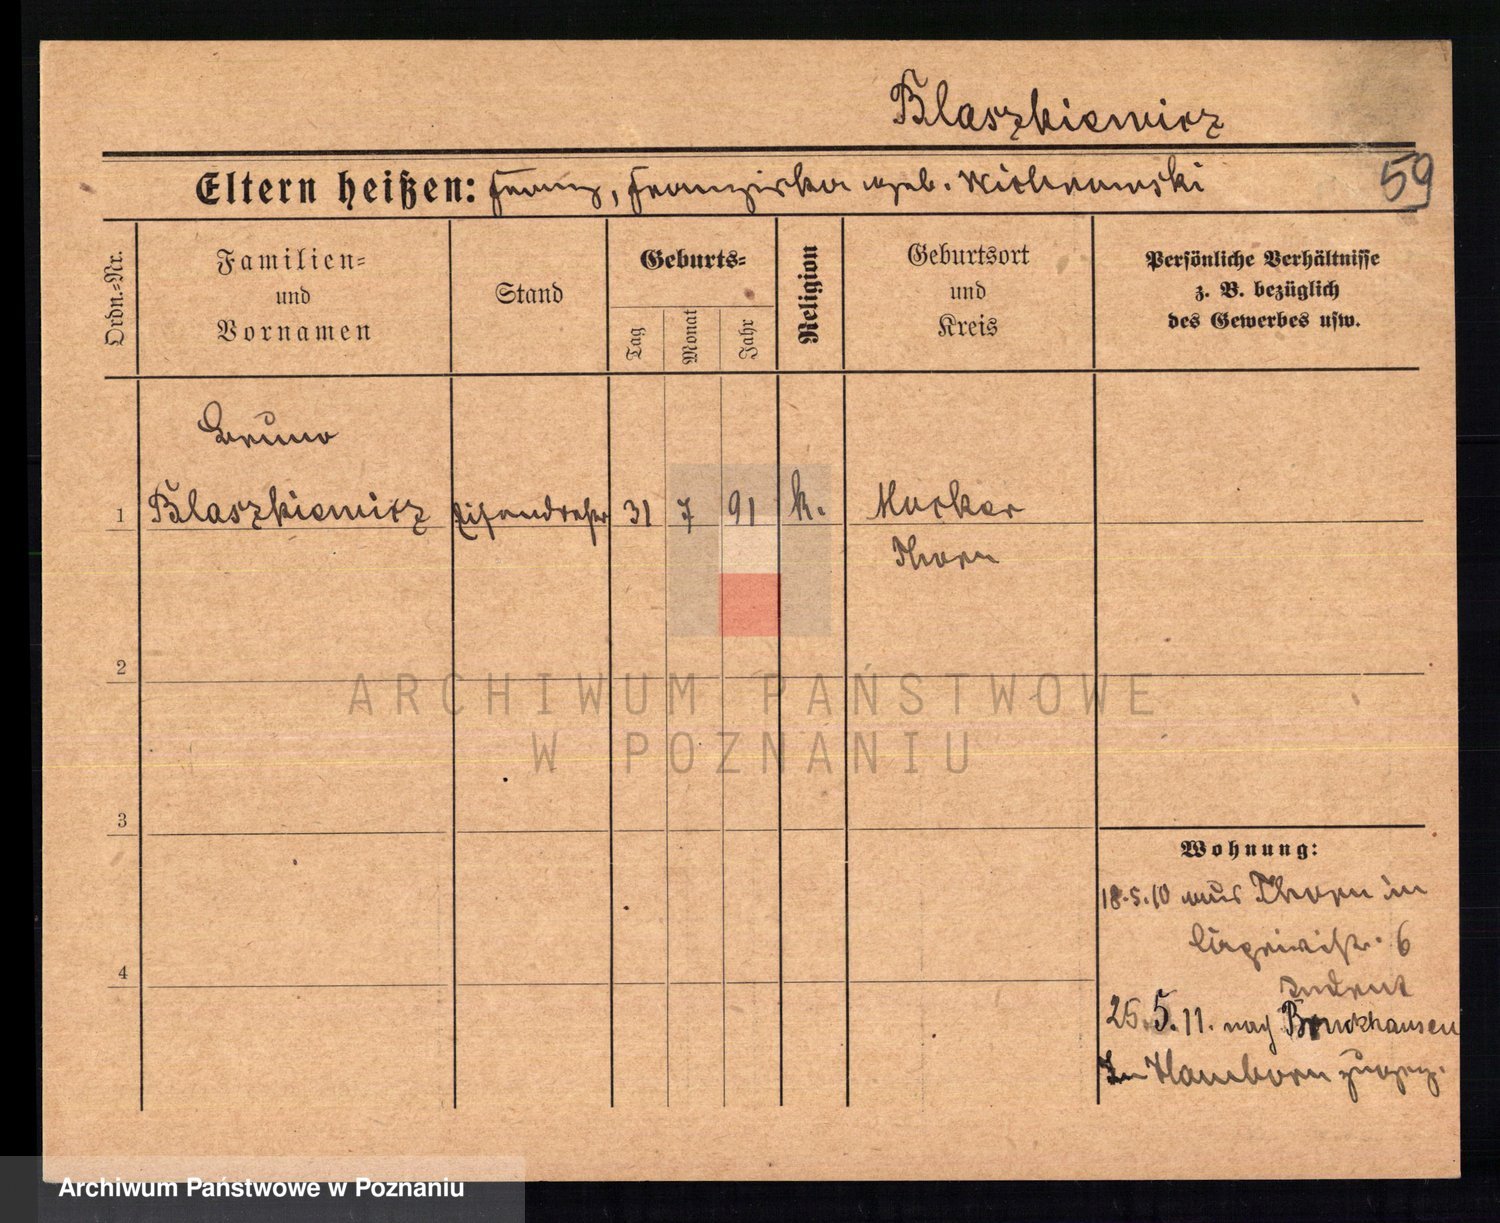 Blaszkiewicz
59
Eltern heißen: Franz, Franziska geb. Wichrowski
Ordn.-Nr.
Familien- und Vornamen
Stand
Geburts-
Tag
Monat
Jahr
Religion
Geburtsort und Kreis
Persönliche Verhältnisse
z. B. bezüglich
des Gewerbes usw.
Bruno
1 Blaszkiewicz Eisendreher 31 7 91 k. Mocker
Thorn
2
3
4
Wohnung:
18.5.10 aus Thorn in
6
25.5.11. nach Bruckhausen
In Hamborn zugez.
ARCHIWUM PAŃSTWOWE
W POZNANIU
Archiwum Państwowe w Poznaniu